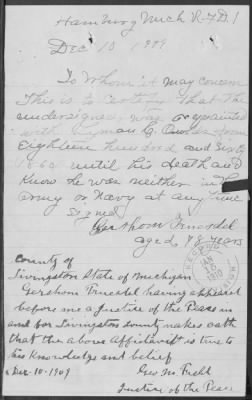 Hamburg Mich R.F.D. 1
Dec 10 1909
To Whom it May Concern
This is to certify that the
undersigned was acquainted
with Lyman C. from
Eighteen hundred and Sixty
1860 until his death and
Know he was neither in the
army or Navy at any time
Signed
Gershom
aged 78 years
County of
Livingston State of Michigan
Gershom having appeared
before me a Justice of the Peace in
and for Livingston County makes oath
that the above Affidavit is true to
his Knowledge and belief
Dec-10-1909 Geo M.
Justice of the Peace